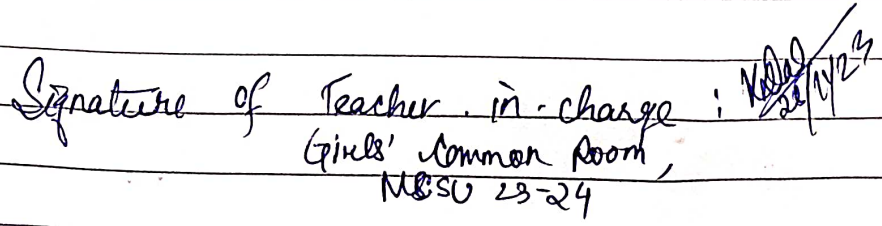 Signature of Teacher. in-charge :
Girls' Common Room,
MCSU 23-24